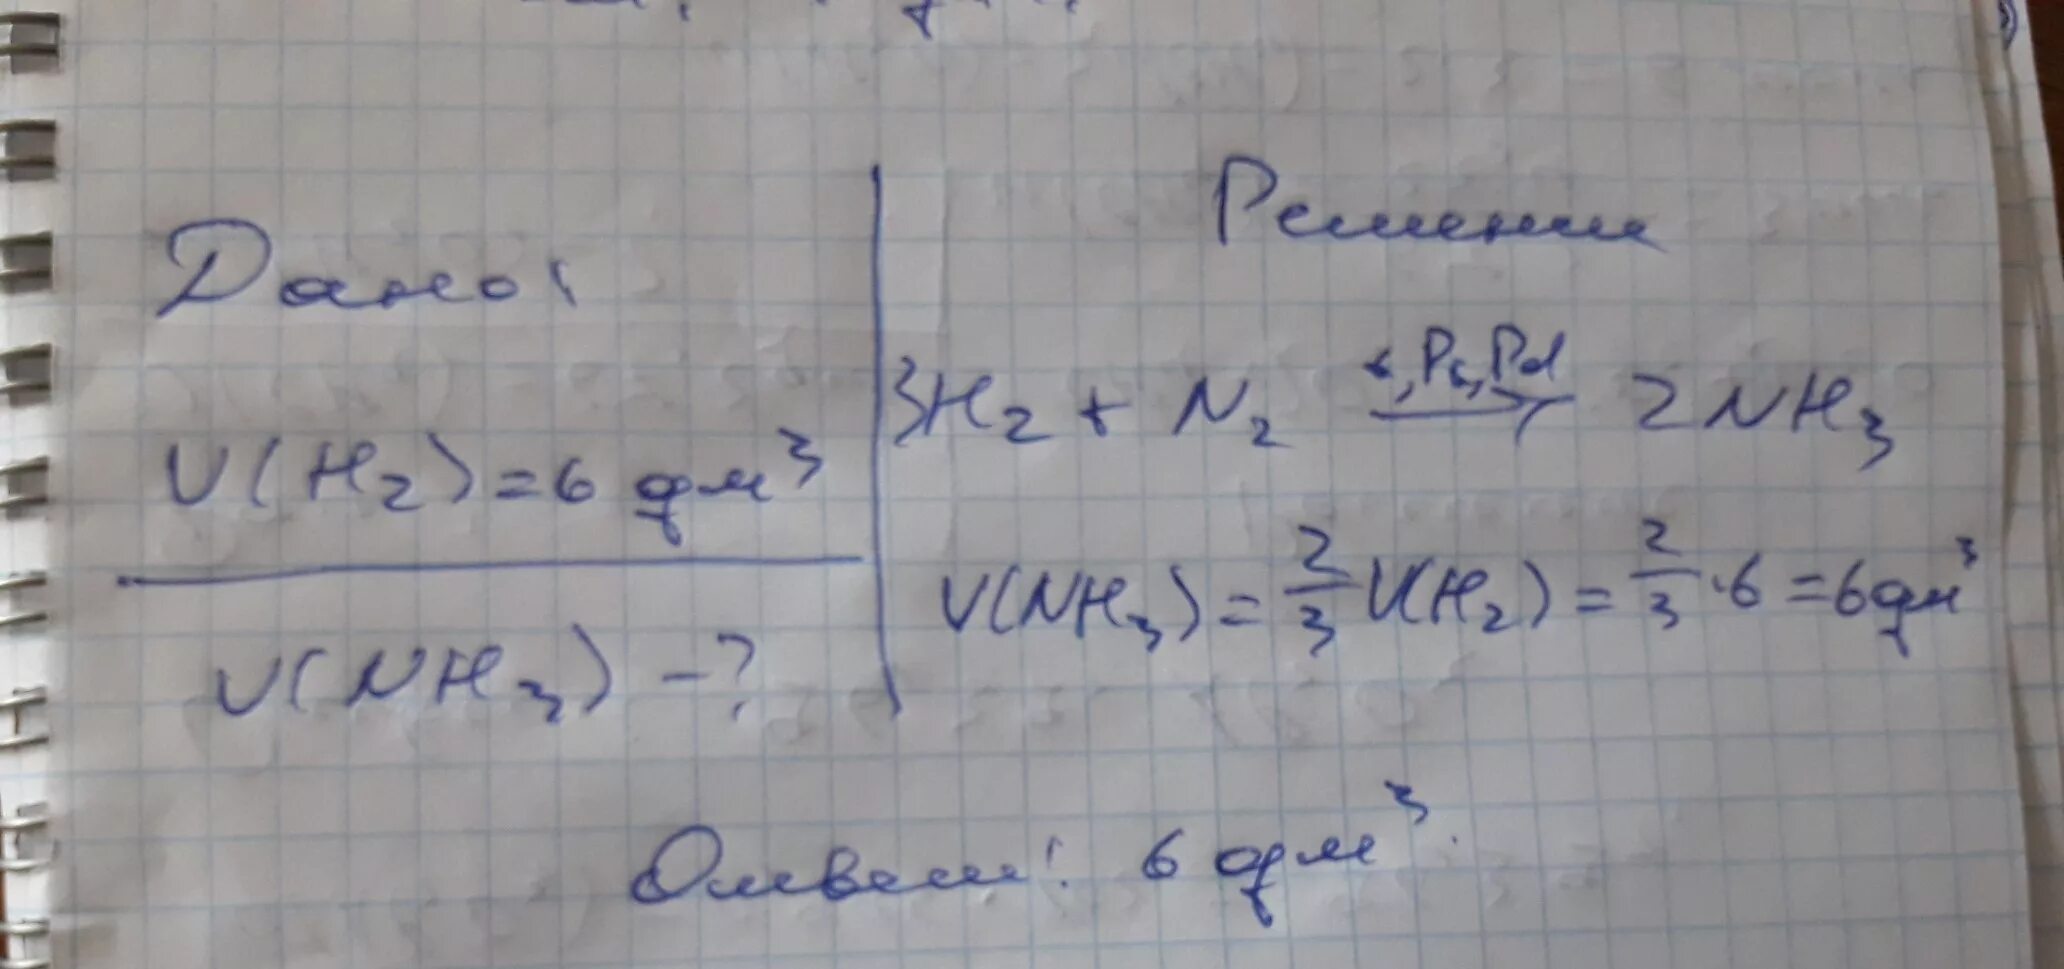 Дано:
V(H₂) = 6 дм³
V(NH₃) - ?
Решение
3H₂ + N₂ t, Pt, Pd → 2NH₃
V(NH₃) = 2/3 V(H₂) = 2/3 · 6 = 6 дм³
Ответ: 6 дм³.